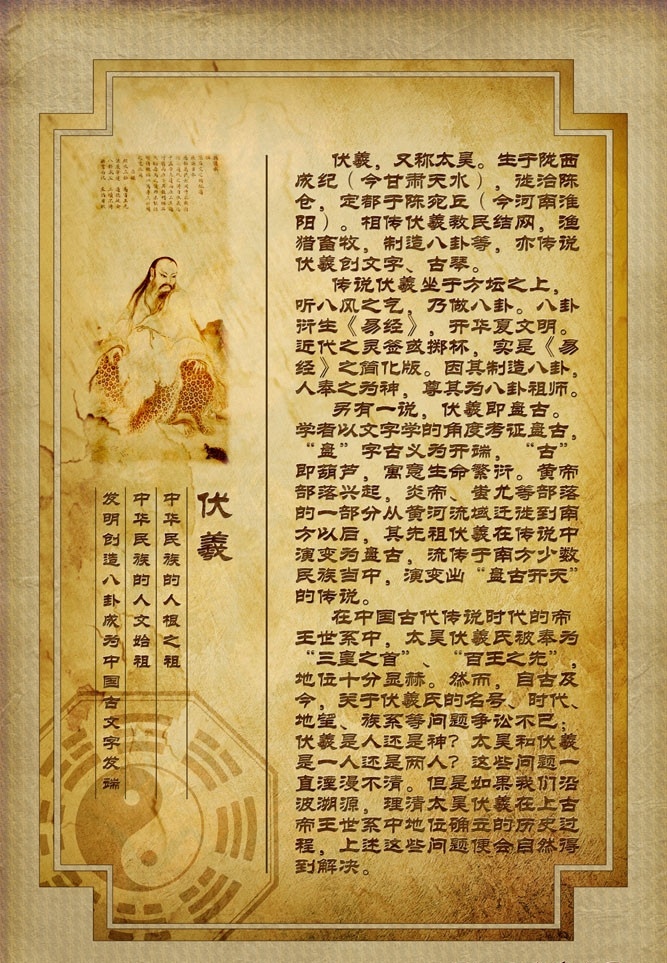 伏羲，又称太昊。生于陇西
成纪（今甘肃天水），徙治陈
仓，定都于陈宛丘（今河南淮
阳）。相传伏羲教民结网，渔
猎畜牧，制造八卦等，亦传说
伏羲创文字、古琴。
传说伏羲坐于方坛之上，
听八风之气，乃做八卦。八卦
衍生《易经》，开华夏文明。
近代之灵签或掷杯，实是《易
经》之简化版。因其制造八卦，
人奉之为神，尊其为八卦祖师。
另有一说，伏羲即盘古。
学者以文字学的角度考证盘古，
“盘”字古义为开端，“古”
即葫芦，寓意生命繁衍。黄帝
部落兴起，炎帝、蚩尤等部落
的一部分从黄河流域迁徙到南
方以后，其先祖伏羲在传说中
演变为盘古，流传于南方少数
民族当中，演变出“盘古开天”
的传说。
在中国古代传说时代的帝
王世系中，太昊伏羲氏被奉为
“三皇之首”、“百王之先”，
地位十分显赫。然而，自古及
今，关于伏羲氏的名号、时代、
地望、族系等问题争讼不已；
伏羲是人还是神？太昊和伏羲
是一人还是两人？这些问题一
直湮漫不清。但是如果我们沿
波溯源，理清太昊伏羲在上古
帝王世系中地位确立的历史过
程，上述这些问题便会自然得
到解决。
伏羲
中华民族的人根之祖
中华民族的人文始祖
发明创造八卦成为中国古文字发端